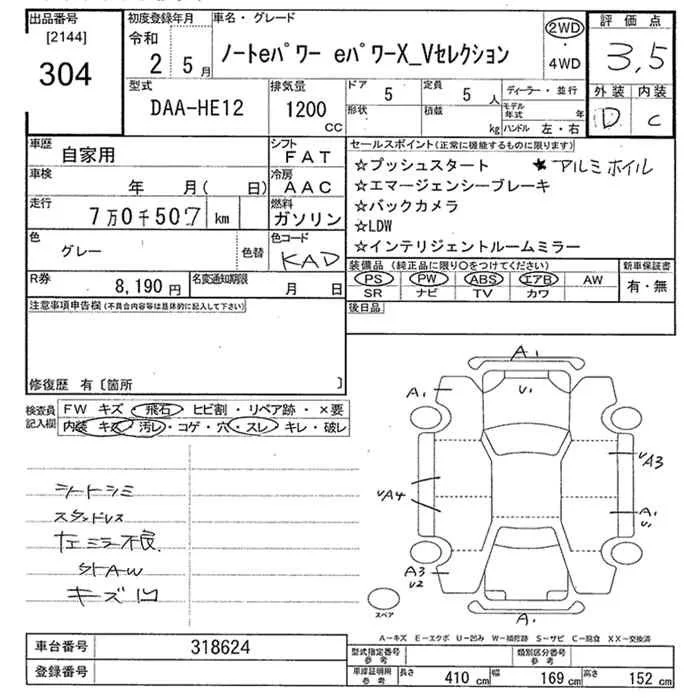 出品番号
[2144]
304
初度登録年月
令和
2 5月
車名・グレード
ノートeパワー eパワーX_Vセレクション
2WD
・
4WD
評価点
3,5
外装 内装
D C
型式
DAA-HE12
排気量
1200
CC
ドア
5
形状
定員
5 人
積載
kg
ディーラー・並行
モデル年式 年
ハンドル 左・右
車歴
自家用
シフト
FAT
車検
年 月( 日)
冷房
AAC
走行
7万0千507 km
燃料
ガソリン
色
グレー
色替
色コード
KAD
R券
8,190円
名変通知期限
月 日
セールスポイント(正常に機能するものに限ります)
☆プッシュスタート ★アルミホイル
☆エマージェンシーブレーキ
☆バックカメラ
☆LDW
☆インテリジェントルームミラー
装備品(純正品に限り○をつけてください)
PS PW ABS エアB AW
SR ナビ TV カワ
新車保証書
有・無
後日品
注意事項申告欄(不具合内容等は具体的に記入して下さい)
修復歴 有〔箇所 〕
検査員記入欄
FW キズ・飛石・ヒビ割・リペア跡・×要
内装 キズ・汚レ・コゲ・穴・スレ・キレ・破レ
シートシミ
スタッドレス
左ミラー不良
ST AW
キズ凹
A1
A1
U1
UA3
UA4
A1
U1
A3
U2
A1
スペア
A-キズ E-エクボ U-凹み W-補修跡 S-サビ C-腐食 XX-交換済
車台番号
318624
登録番号
型式指定番号
参考
類別区分番号
参考
車庫証明用
参考
長さ 410 cm 幅 169 cm 高さ 152 cm